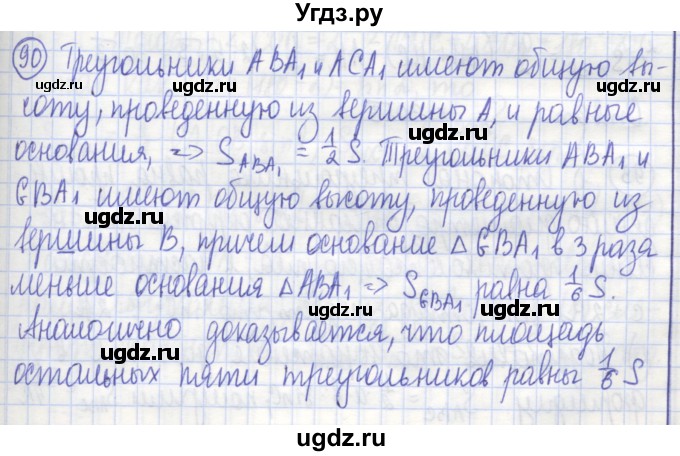 Угдз.ру
90 Треугольники ABA₁ и ACA₁ имеют общую вы-
соту, проведенную из вершины A, и равные
основания, => S_ABA₁ = 1/2 S. Треугольники ABA₁ и
GBA₁ имеют общую высоту, проведенную из
вершины B, причем основание △GBA₁ в 3 раза
меньше основания △ABA₁ => S_GBA₁ равна 1/6 S.
Аналогично доказывается, что площадь
остальных пяти треугольников равны 1/6 S
ugdz.ru
ugdz.ru
ugdz.ru
ugdz.ru
ugdz.ru
ugdz.ru
ugdz.ru
ugdz.ru
ugdz.ru
ugdz.ru